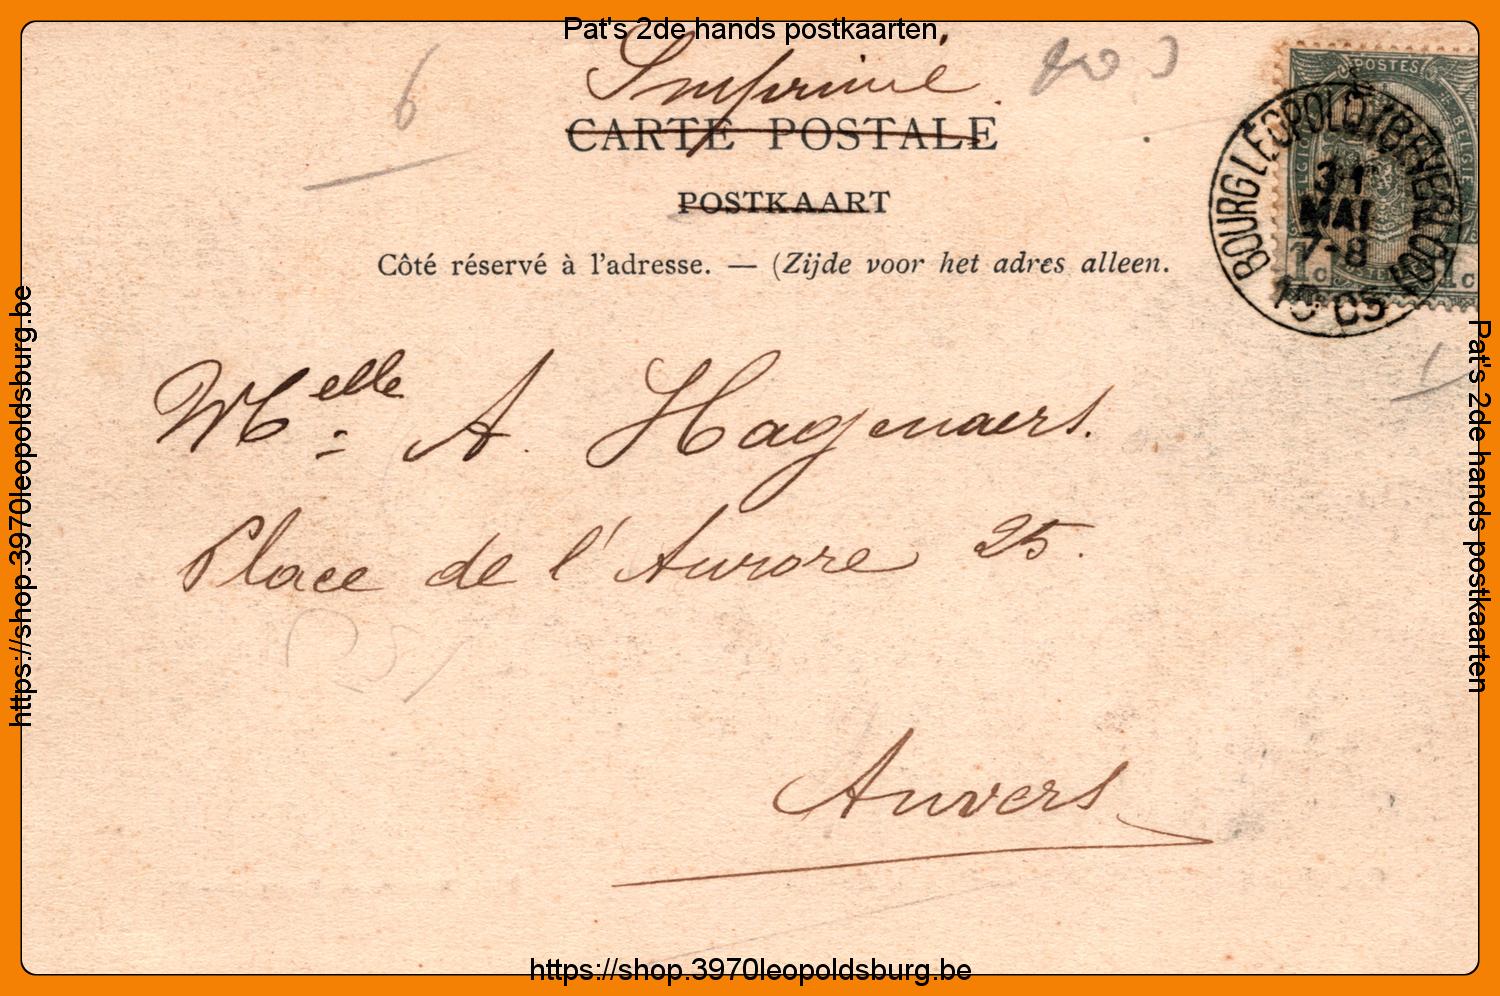 Pat's 2de hands postkaarten
Imprimé
6
CARTE POSTALE
POSTKAART
Côté réservé à l'adresse. — (Zijde voor het adres alleen.
POSTES
BOURG LEOPOLD (BEVERLOO)
31
MAI
7-8
1c 1c
Melle A. Hagenaers.
Place de l'Aurore 25.
Anvers
https://shop.3970leopoldsburg.be
Pat's 2de hands postkaarten
https://shop.3970leopoldsburg.be